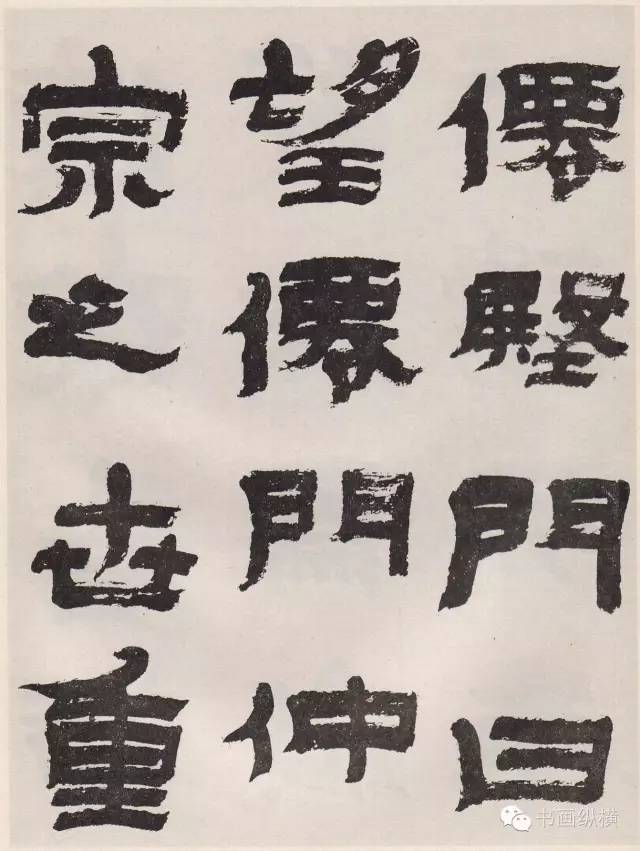 僊壂門曰
望僊門仲
宗之世重
书画纵横